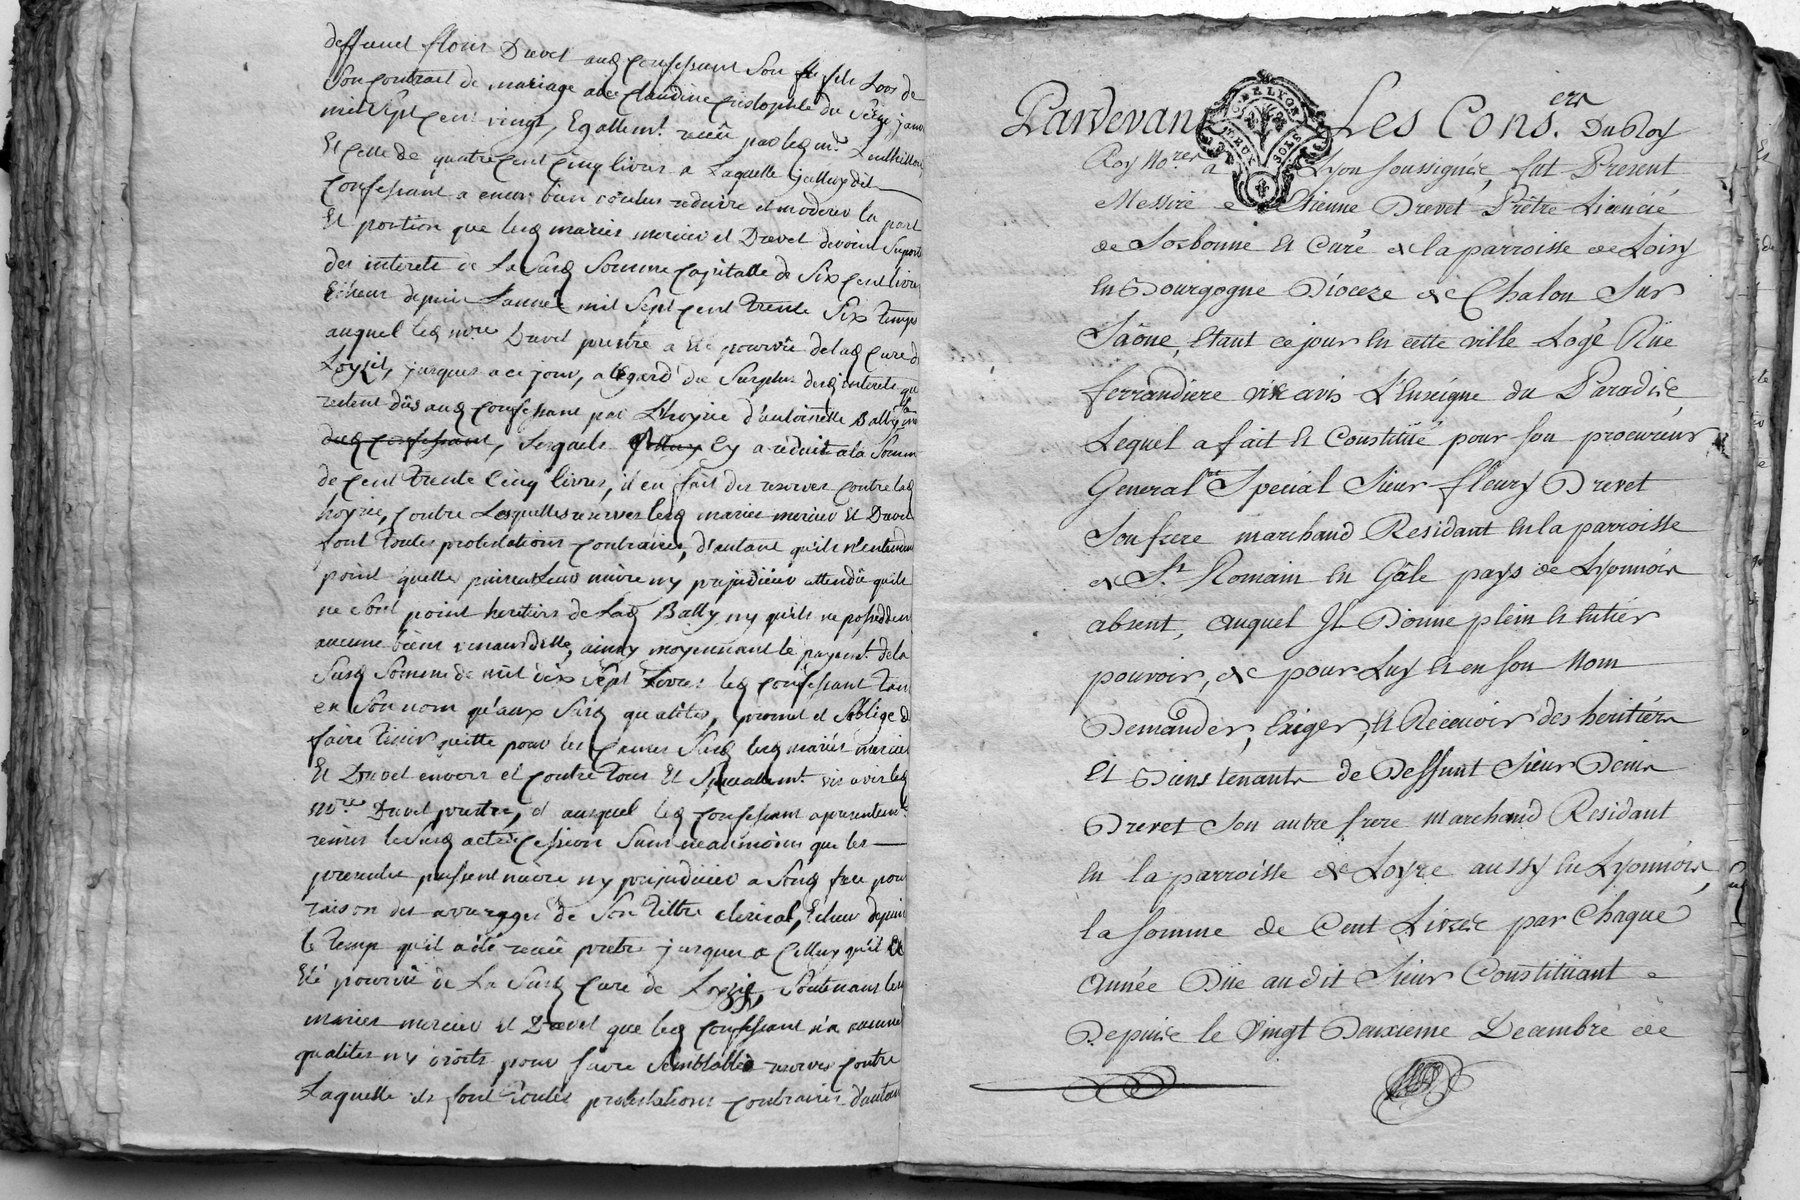 deffunct flouri Drevet aud confessant son fils Lors de
Son contrait de mariage avec Claudine
mil Sept cent vingt, Egallemt. receu par led me.
Et celle de quatre cent cinq livres a Laquelle
confessant a encor bien voulus reduire et moderer la part
Et portion que lesd mariés mercier et Drevet devoint
des interets de La Susd Somme capitalle de Six cent livres
Echeus depuis L'année mil Sept cent trente Six temps
auquel led mre Drevet prestre a été pourvû de lad cure de
jusques a ce jour, a l'égard du Surplus desd interets
restent dûs aud confessant par L'hoyrie d'antoinette Bally
dud confessant, Lesquels il a reduit a la Somme
de cent trente Cinq livres, il en fait des reserves contre lad
hoyrie, contre Lesquelles reserves lesd mariés mercier Et Drevet
font toutes protestations contraires, d'autant qu'ils n'entendent
point qu'elles puissent Leur nuire ny prejudicier attendû qu'ils
ne Sont point heritiers de Lad Bally ny qu'ils ne possedent
aucuns biens venans d'elle, ainsy moyennant le payemt. de la
Susd Somme de mil dix Sept Livres led confessant tant
en Son nom qu'aux Susd qualités, promet et S'oblige de
faire tenir quitte pour les causes Susd lesd mariés mercier
Et Drevet envers et contre tous Et Specallemt. vis a vis led
mre Drevet prestre, et auquel led confessant a presentemt.
remis le Susd acte Cession Sans neanmoins que les
presentes puissent nuire ny prejudicier a Sond fils pour
raison des arrerages de Son tiltre clerical, Echeus depuis
le temp qu'il a été receu prestre jusques a Celluy qu'il a
Eté pourvû de La Susd Cure de Soutenans lesd
mariés mercier Et Drevet que led confessant n'a aucune
qualités ny droits pour faire Semblables reserves contre
Laquelle ils font toutes protestations contraires d'autant
Pardevant Les Cons.ers Du Roy
Roy No.res a Lyon soussignés, fut Present
Messire Etienne Drevet Prêtre Licencié
de Sorbonne et Curé de la parroisse de Loisy
en Bourgogne Dioceze de Chalon Sur
Saône, étant ce jour en cette ville Logé Rüe
ferrandiere vis avis L'Enseigne du Paradis,
Lequel a fait et Constitüé pour son procureur
General et Special Sieur fleury Drevet
Son frere marchand Residant en la parroisse
de St. Romain en Gâle pays de Lyonnois
absent, auquel Il Donne plein et entier
pouvoir, de pour Luy et en son Nom
Demander, Exiger, et Recevoir des heritiers
et Biens tenants de Deffunt Sieur Denis
Drevet Son autre frere marchand Residant
en la parroisse de Loyre aussy en Lyonnois,
la somme de Cent Livres par Chaque
année Düe audit Sieur Constitüant
Depuis le Vingt Deuxieme Decembre de
G. DE LYON
DEUX SOLS